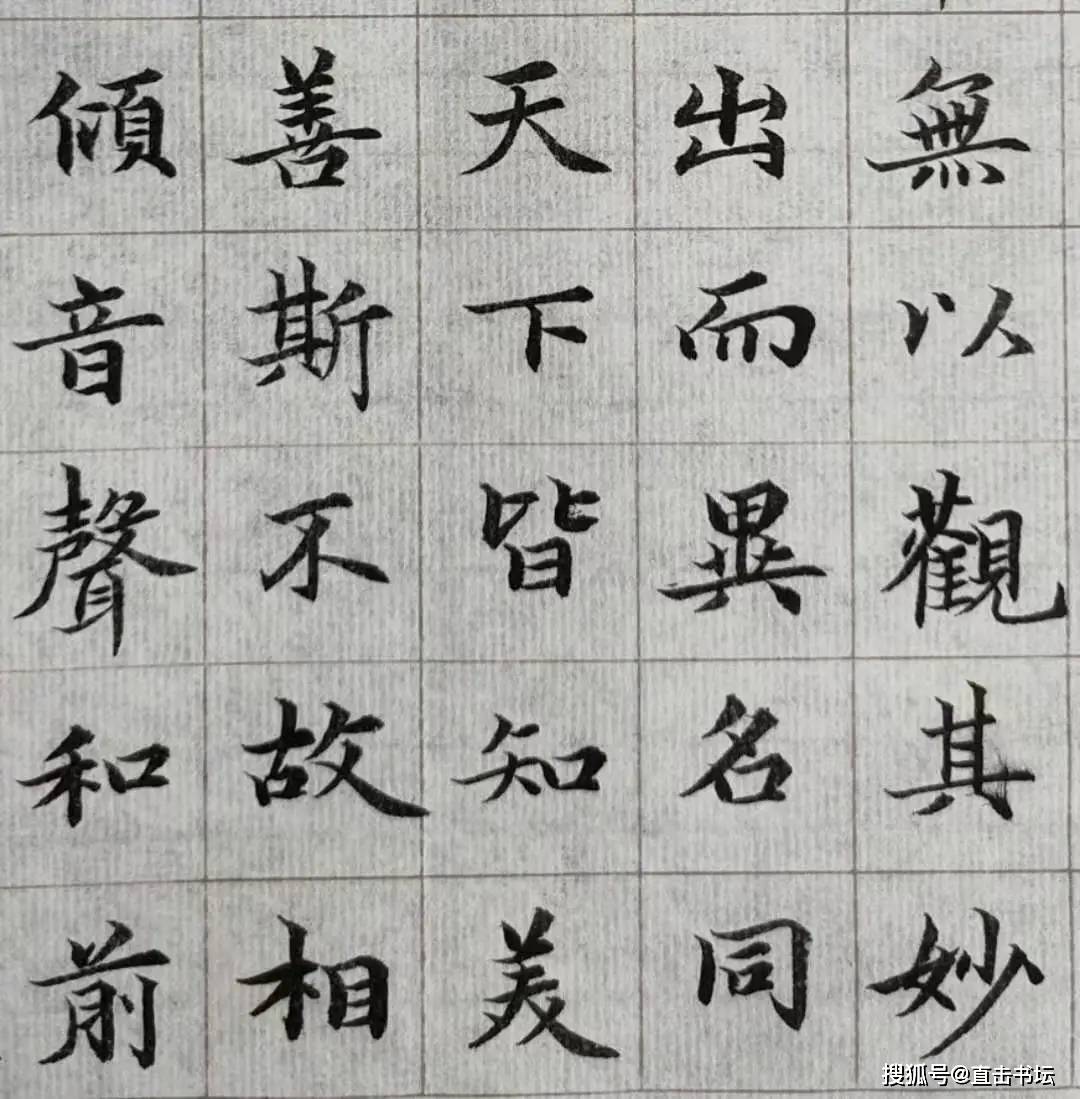 無以觀其妙
出而異名同
天下皆知美
善斯不故相
傾音聲和前
搜狐号@直击书坛